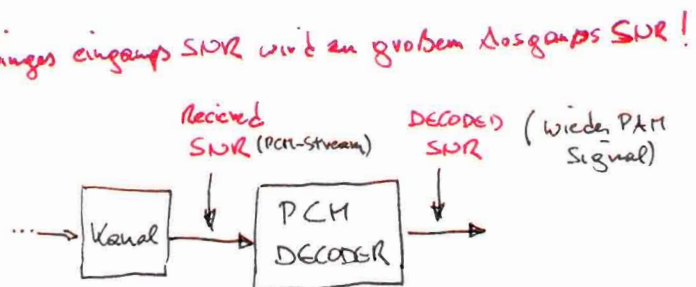 eingangs SNR wird zu großem Ausgangs SNR!
Recieved
SNR (PCM-Stream)
DECODED
SNR
(wieder PAM
Signal)
... Kanal
PCM
DECODER